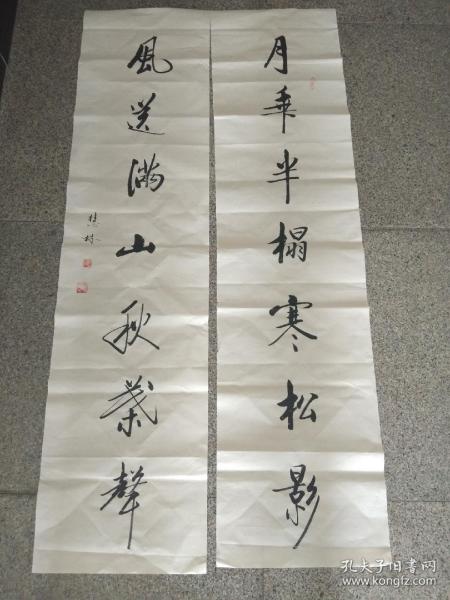 月垂半榻寒松影
風送滿山秋葉聲
孔夫子旧书网
www.kongfz.com